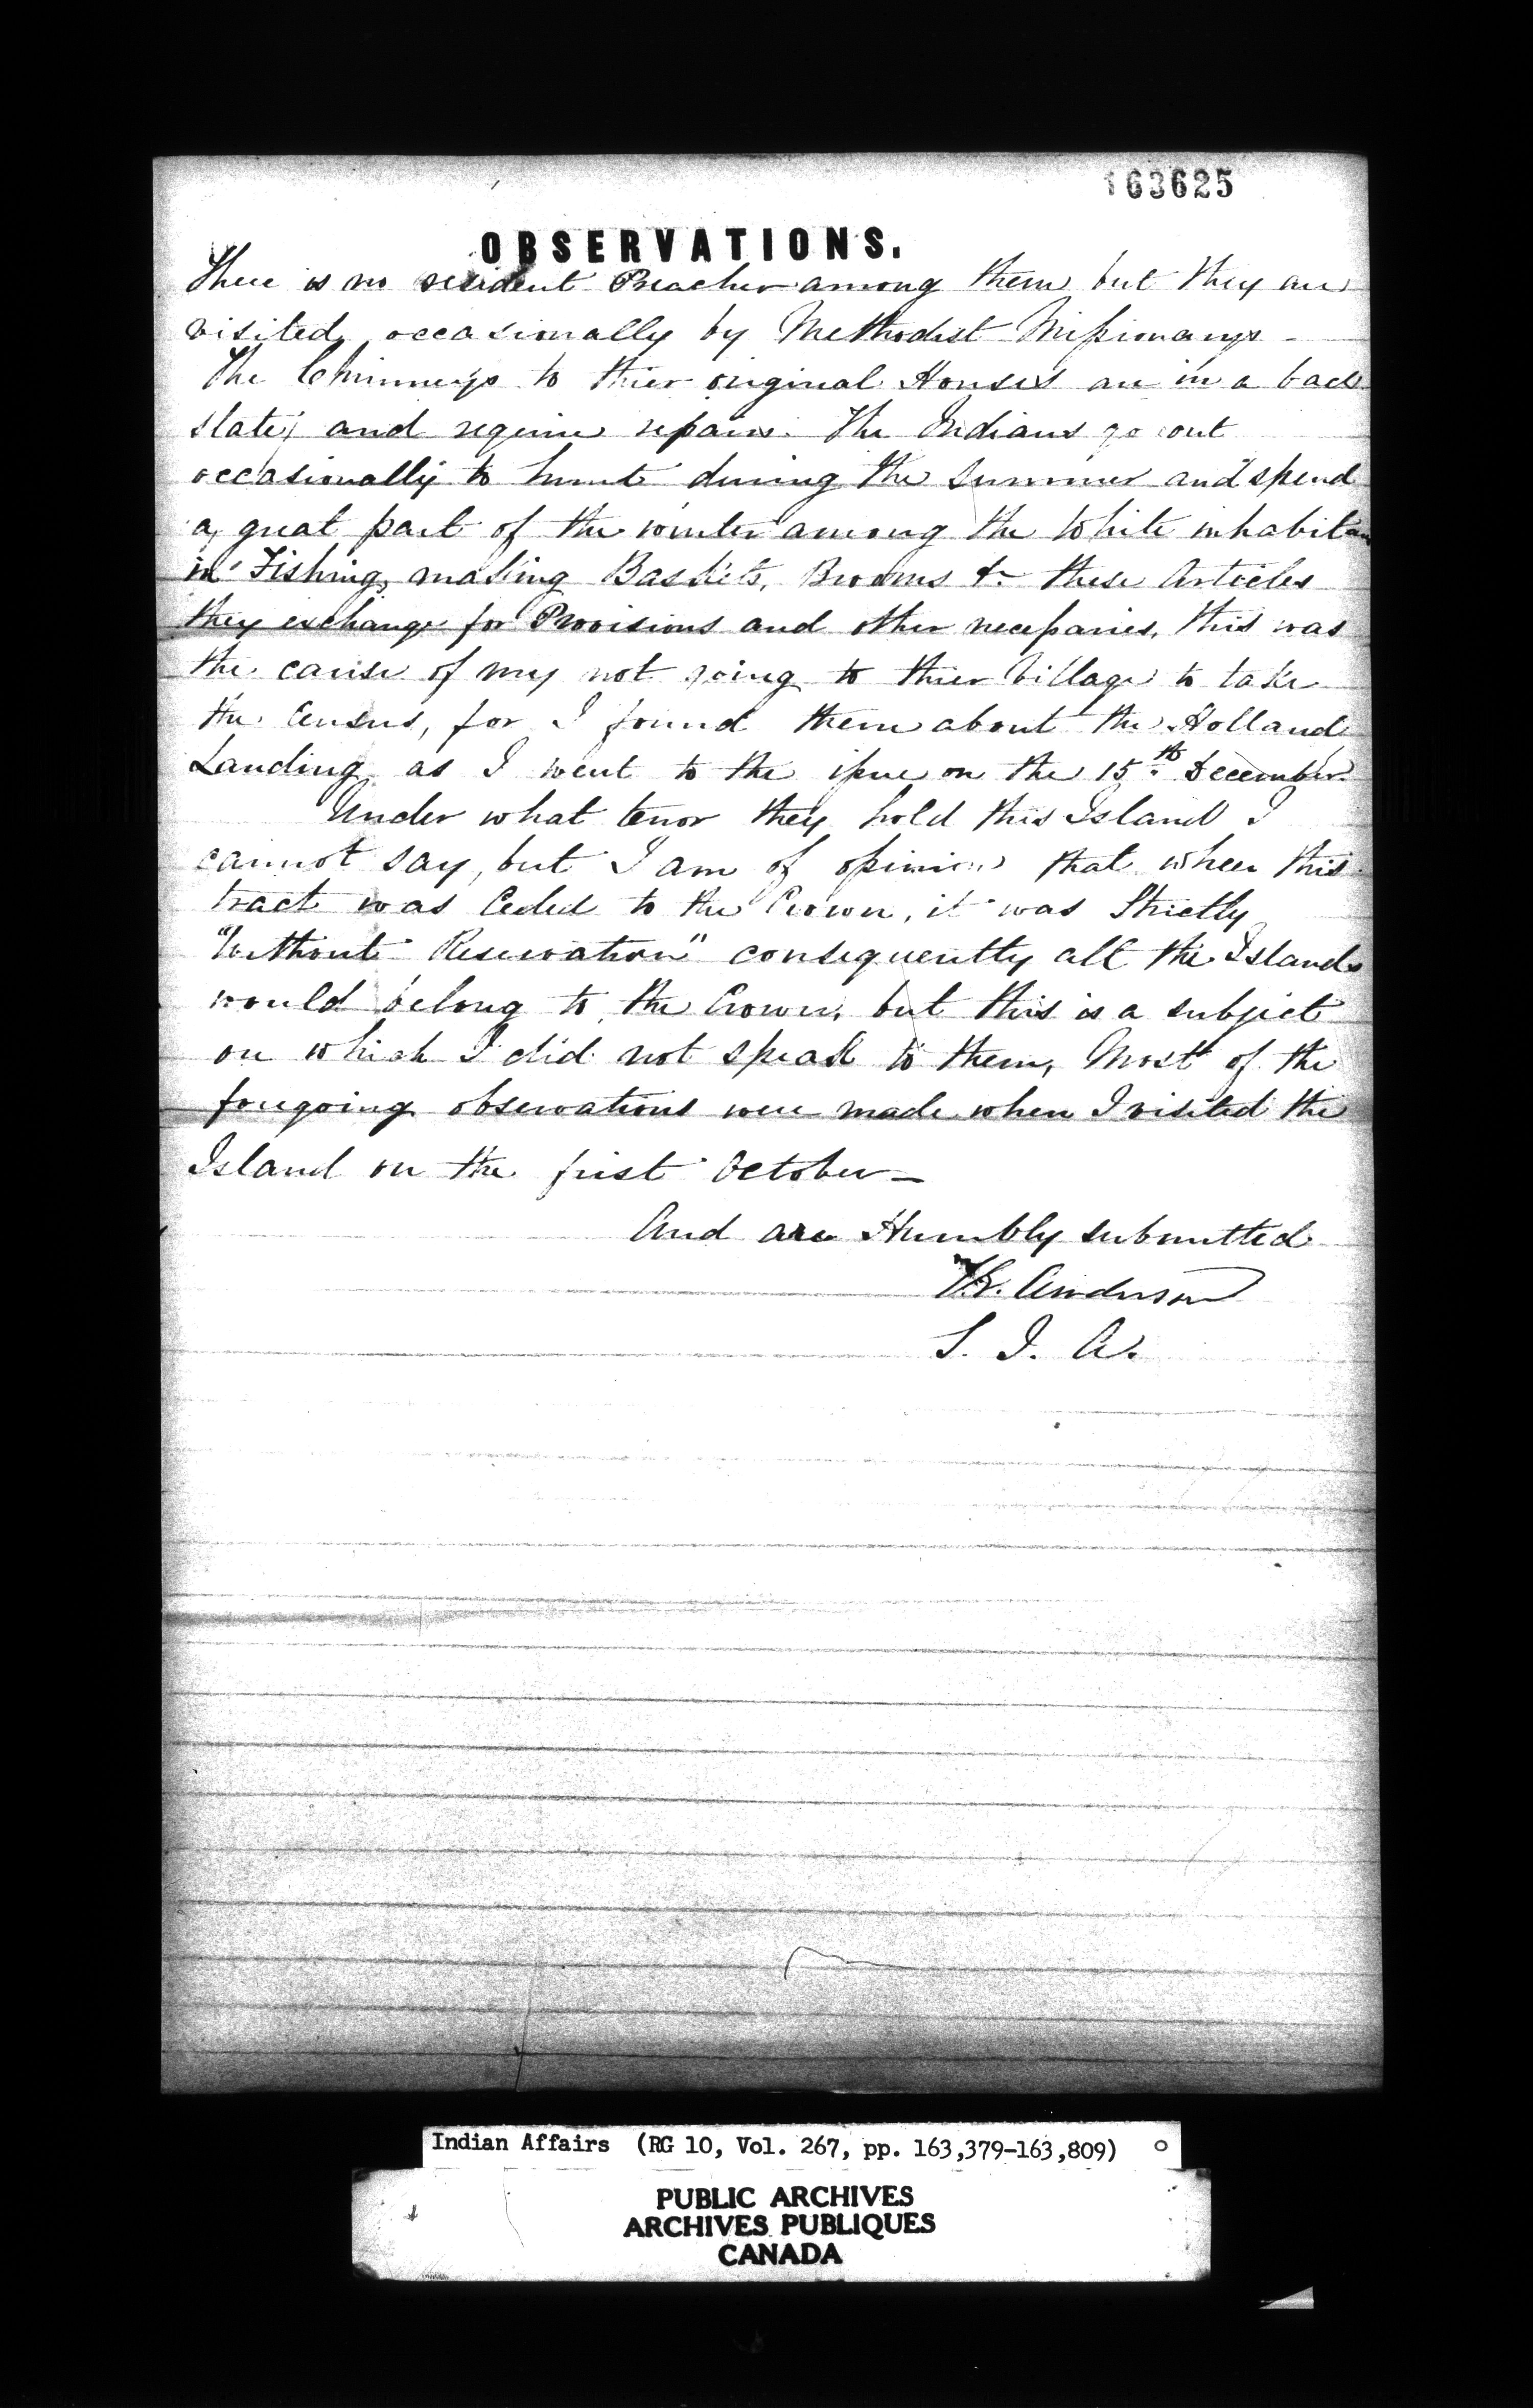 163625
OBSERVATIONS.
There is no resident Preacher among them but they are
visited occasionally by Methodist Missionarys -
The Chimneys to thier original Houses are in a bad
state, and require repairs. The Indians go out
occasionally to hunt during the Summer and spend
a great part of the winter among the White inhabitan
in Fishing, making Baskets, Brooms &c these Articles
they exchange for Provisions and other necessaries, this was
the cause of my not going to thier Village to take
the Census, for I found them about the Holland
Landing as I went to the issue on the 15th December
Under what tenor they hold this Island I
cannot say, but I am of opinion that when this
tract was Ceded to the Crown, it was Strictly
"Without Reservation" consequently all the Islands
would belong to the Crown, but this is a subject
on which I did not speak to them, Most of the
foregoing observations were made when I visited the
Island on the first October -
And are Humbly submitted
T.G. Anderson
S. I. A.
Indian Affairs (RG 10, Vol. 267, pp. 163,379-163,809)
PUBLIC ARCHIVES
ARCHIVES PUBLIQUES
CANADA